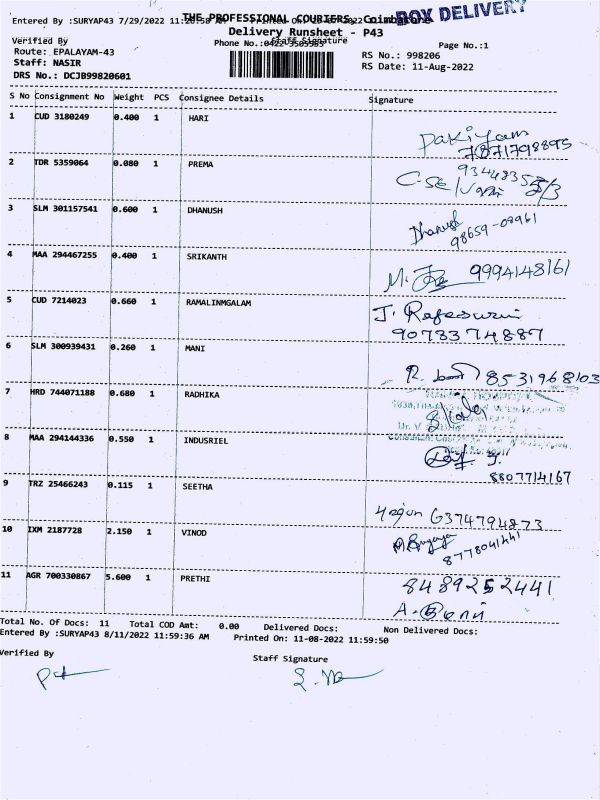 Entered By :SURYAP43 7/29/2022
THE PROFESSIONAL COURIERS, Coimbatore
BOX DELIVERY
Delivery Runsheet - P43
Verified By
Staff Signature
Phone No.:0422
Page No.:1
Route: EPALAYAM-43
RS No.: 998206
Staff: NASIR
RS Date: 11-Aug-2022
DRS No.: DCJB99820601
S No Consignment No Weight PCS Consignee Details Signature
1 CUD 3180249 0.400 1 HARI
Pakiyam
7871798895
2 TDR 5359064 0.080 1 PREMA
3 SLM 301157541 0.600 1 DHANUSH
Dhanush
98659-09961
4 MAA 294467255 0.400 1 SRIKANTH
9994148161
5 CUD 7214023 0.660 1 RAMALINMGALAM
J. Rajeswari
9078374887
6 SLM 300939431 0.260 1 MANI
8531968103
7 HRD 744071188 0.680 1 RADHIKA
8 MAA 294144336 0.550 1 INDUSRIEL
8807714167
9 TRZ 25466243 0.115 1 SEETHA
6374794873
10 IXM 2187728 2.150 1 VINOD
8778041441
11 AGR 700330867 5.600 1 PRETHI
8489252441
Total No. Of Docs: 11 Total COD Amt: 0.00 Delivered Docs: Non Delivered Docs:
Entered By :SURYAP43 8/11/2022 11:59:36 AM Printed On: 11-08-2022 11:59:50
Verified By
Staff Signature